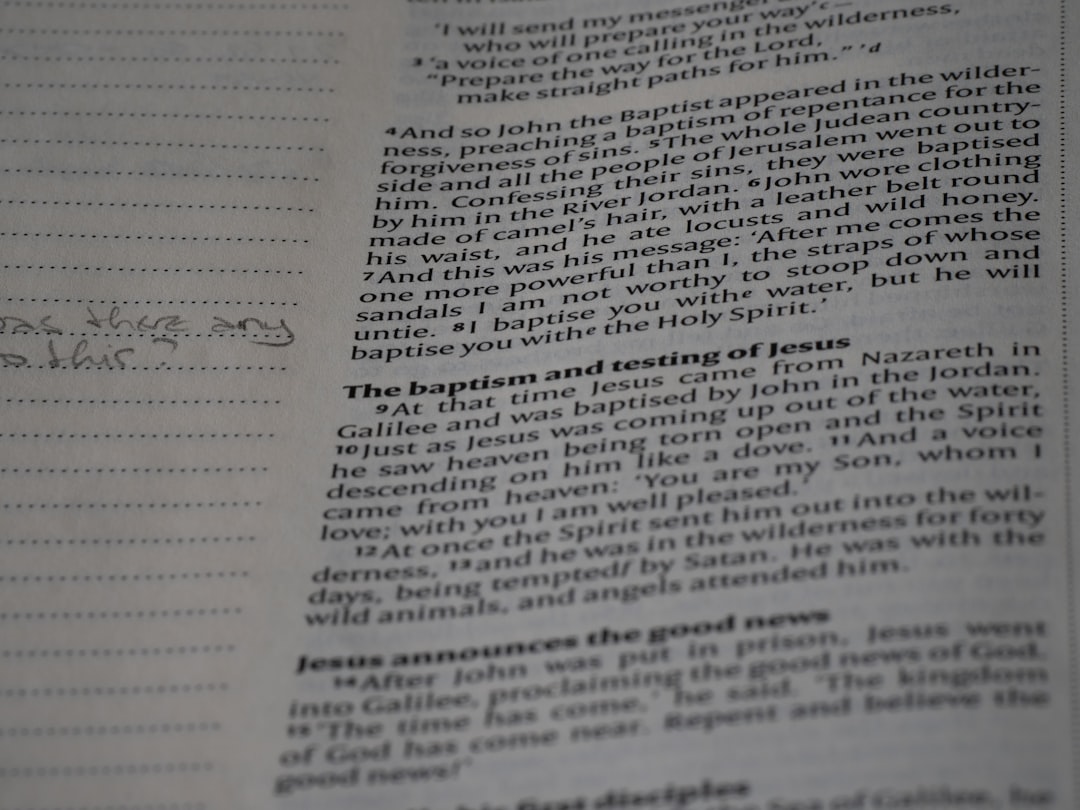 'I will send my messenger
who will prepare your way'c —
3 'a voice of one calling in the wilderness,
"Prepare the way for the Lord,
make straight paths for him." 'd
4 And so John the Baptist appeared in the wilder-
ness, preaching a baptism of repentance for the
forgiveness of sins. 5 The whole Judean country-
side and all the people of Jerusalem went out to
him. Confessing their sins, they were baptised
by him in the River Jordan. 6 John wore clothing
made of camel's hair, with a leather belt round
his waist, and he ate locusts and wild honey.
7 And this was his message: 'After me comes the
one more powerful than I, the straps of whose
sandals I am not worthy to stoop down and
untie. 8 I baptise you withe water, but he will
baptise you withe the Holy Spirit.'
The baptism and testing of Jesus
9 At that time Jesus came from Nazareth in
Galilee and was baptised by John in the Jordan.
10 Just as Jesus was coming up out of the water,
he saw heaven being torn open and the Spirit
descending on him like a dove. 11 And a voice
came from heaven: 'You are my Son, whom I
love; with you I am well pleased.'
12 At once the Spirit sent him out into the wil-
derness, 13 and he was in the wilderness for forty
days, being temptedf by Satan. He was with the
wild animals, and angels attended him.
Jesus announces the good news
14 After John was put in prison, Jesus went
into Galilee, proclaiming the good news of God.
15 'The time has come,' he said. 'The kingdom
of God has come near. Repent and believe the
good news!'
first disciples
Sea of Galilee, he
was there any
this?